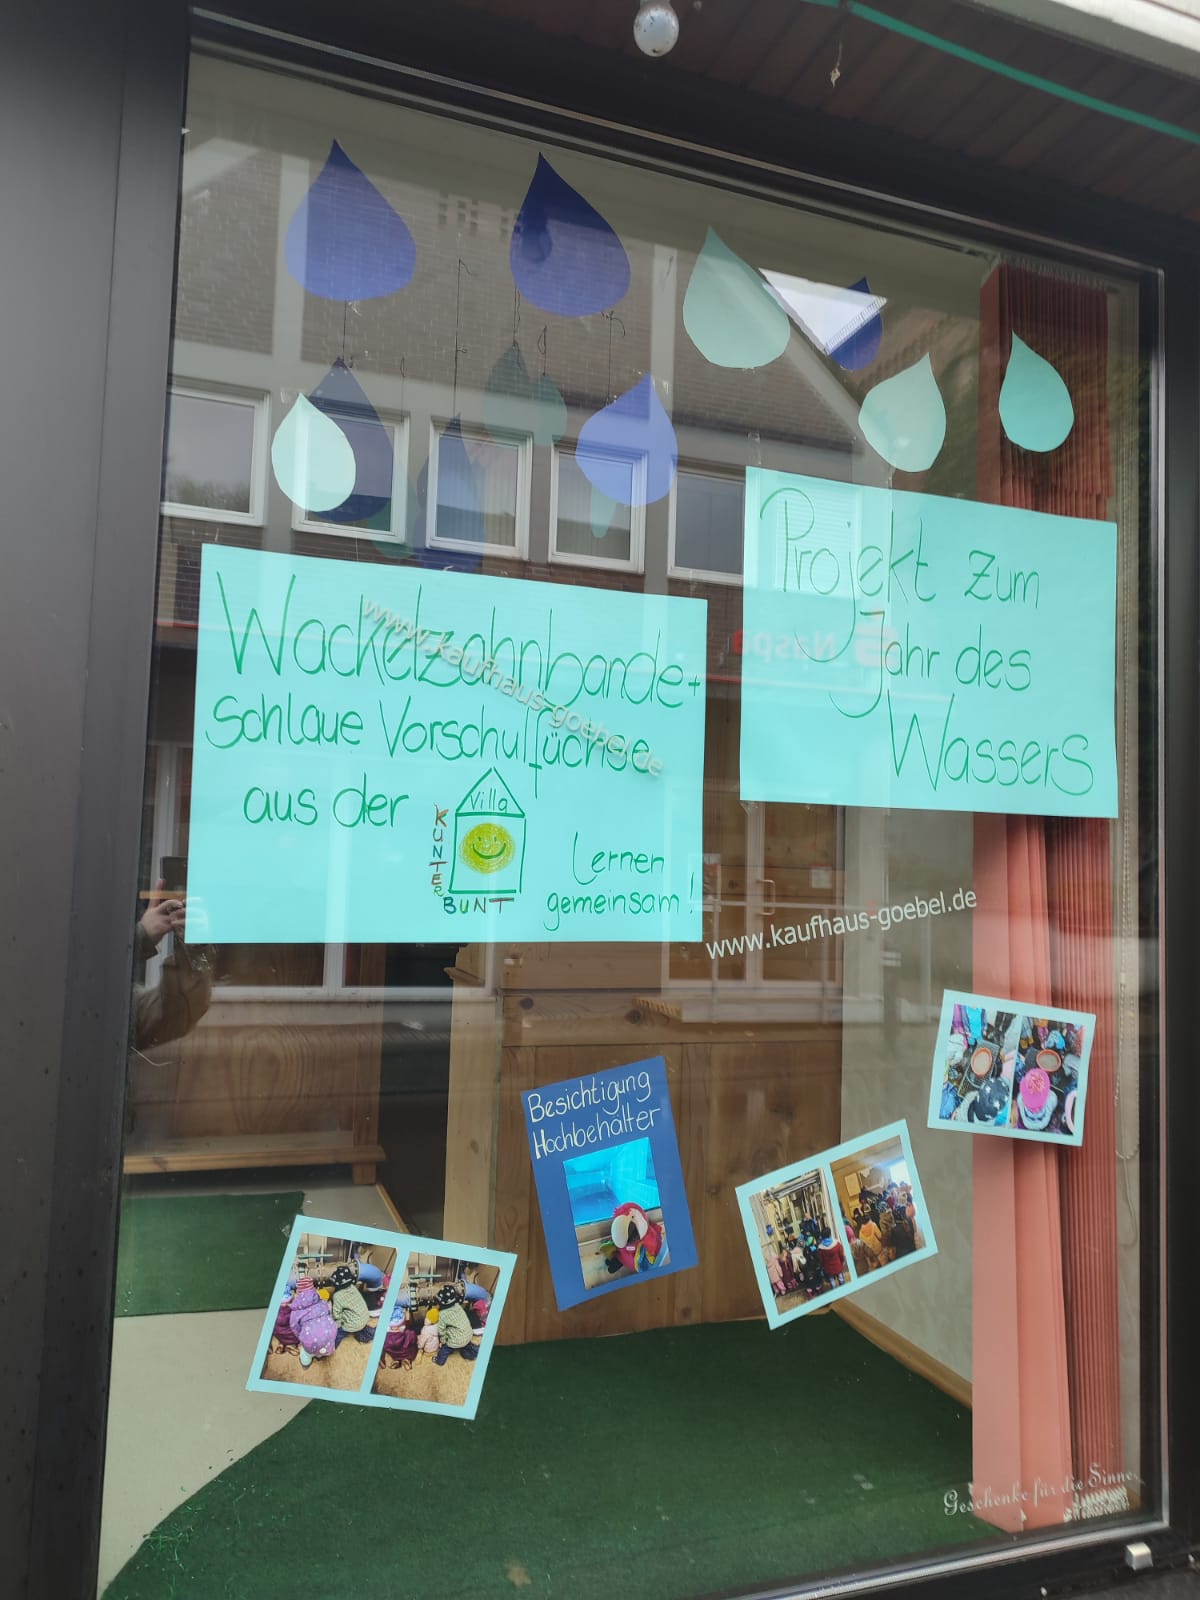 Projekt zum
Jahr des
Wassers
Wackelzahnbande +
Schlaue Vorschulfüchse
aus der
Villa
KUNTER
BUNT
Lernen
gemeinsam!
www.kaufhaus-goebel.de
www.kaufhaus-goebel.de
Naspa
Besichtigung
Hochbehälter
Geschenke für die Sinne